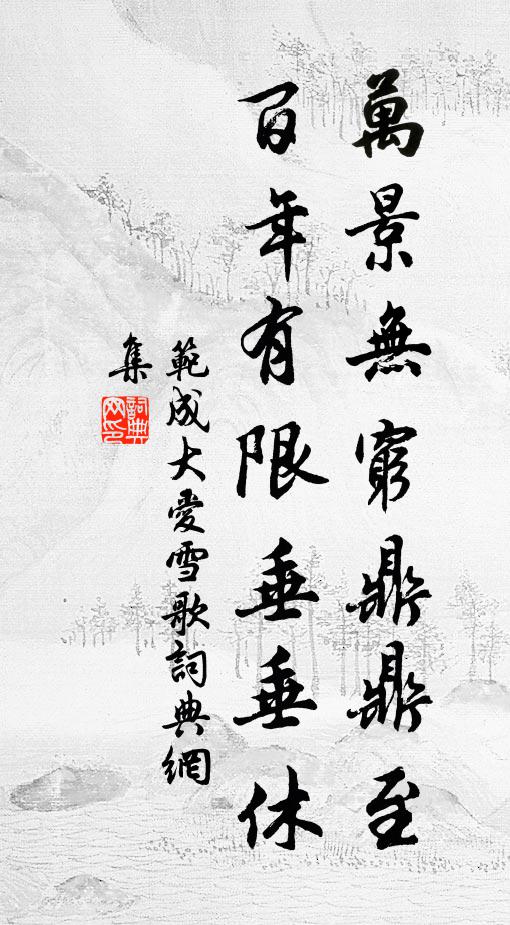 萬景無窮鼎鼎至
百年有限垂垂休
範成大愛雪歌詞典網
集
詞典
网印